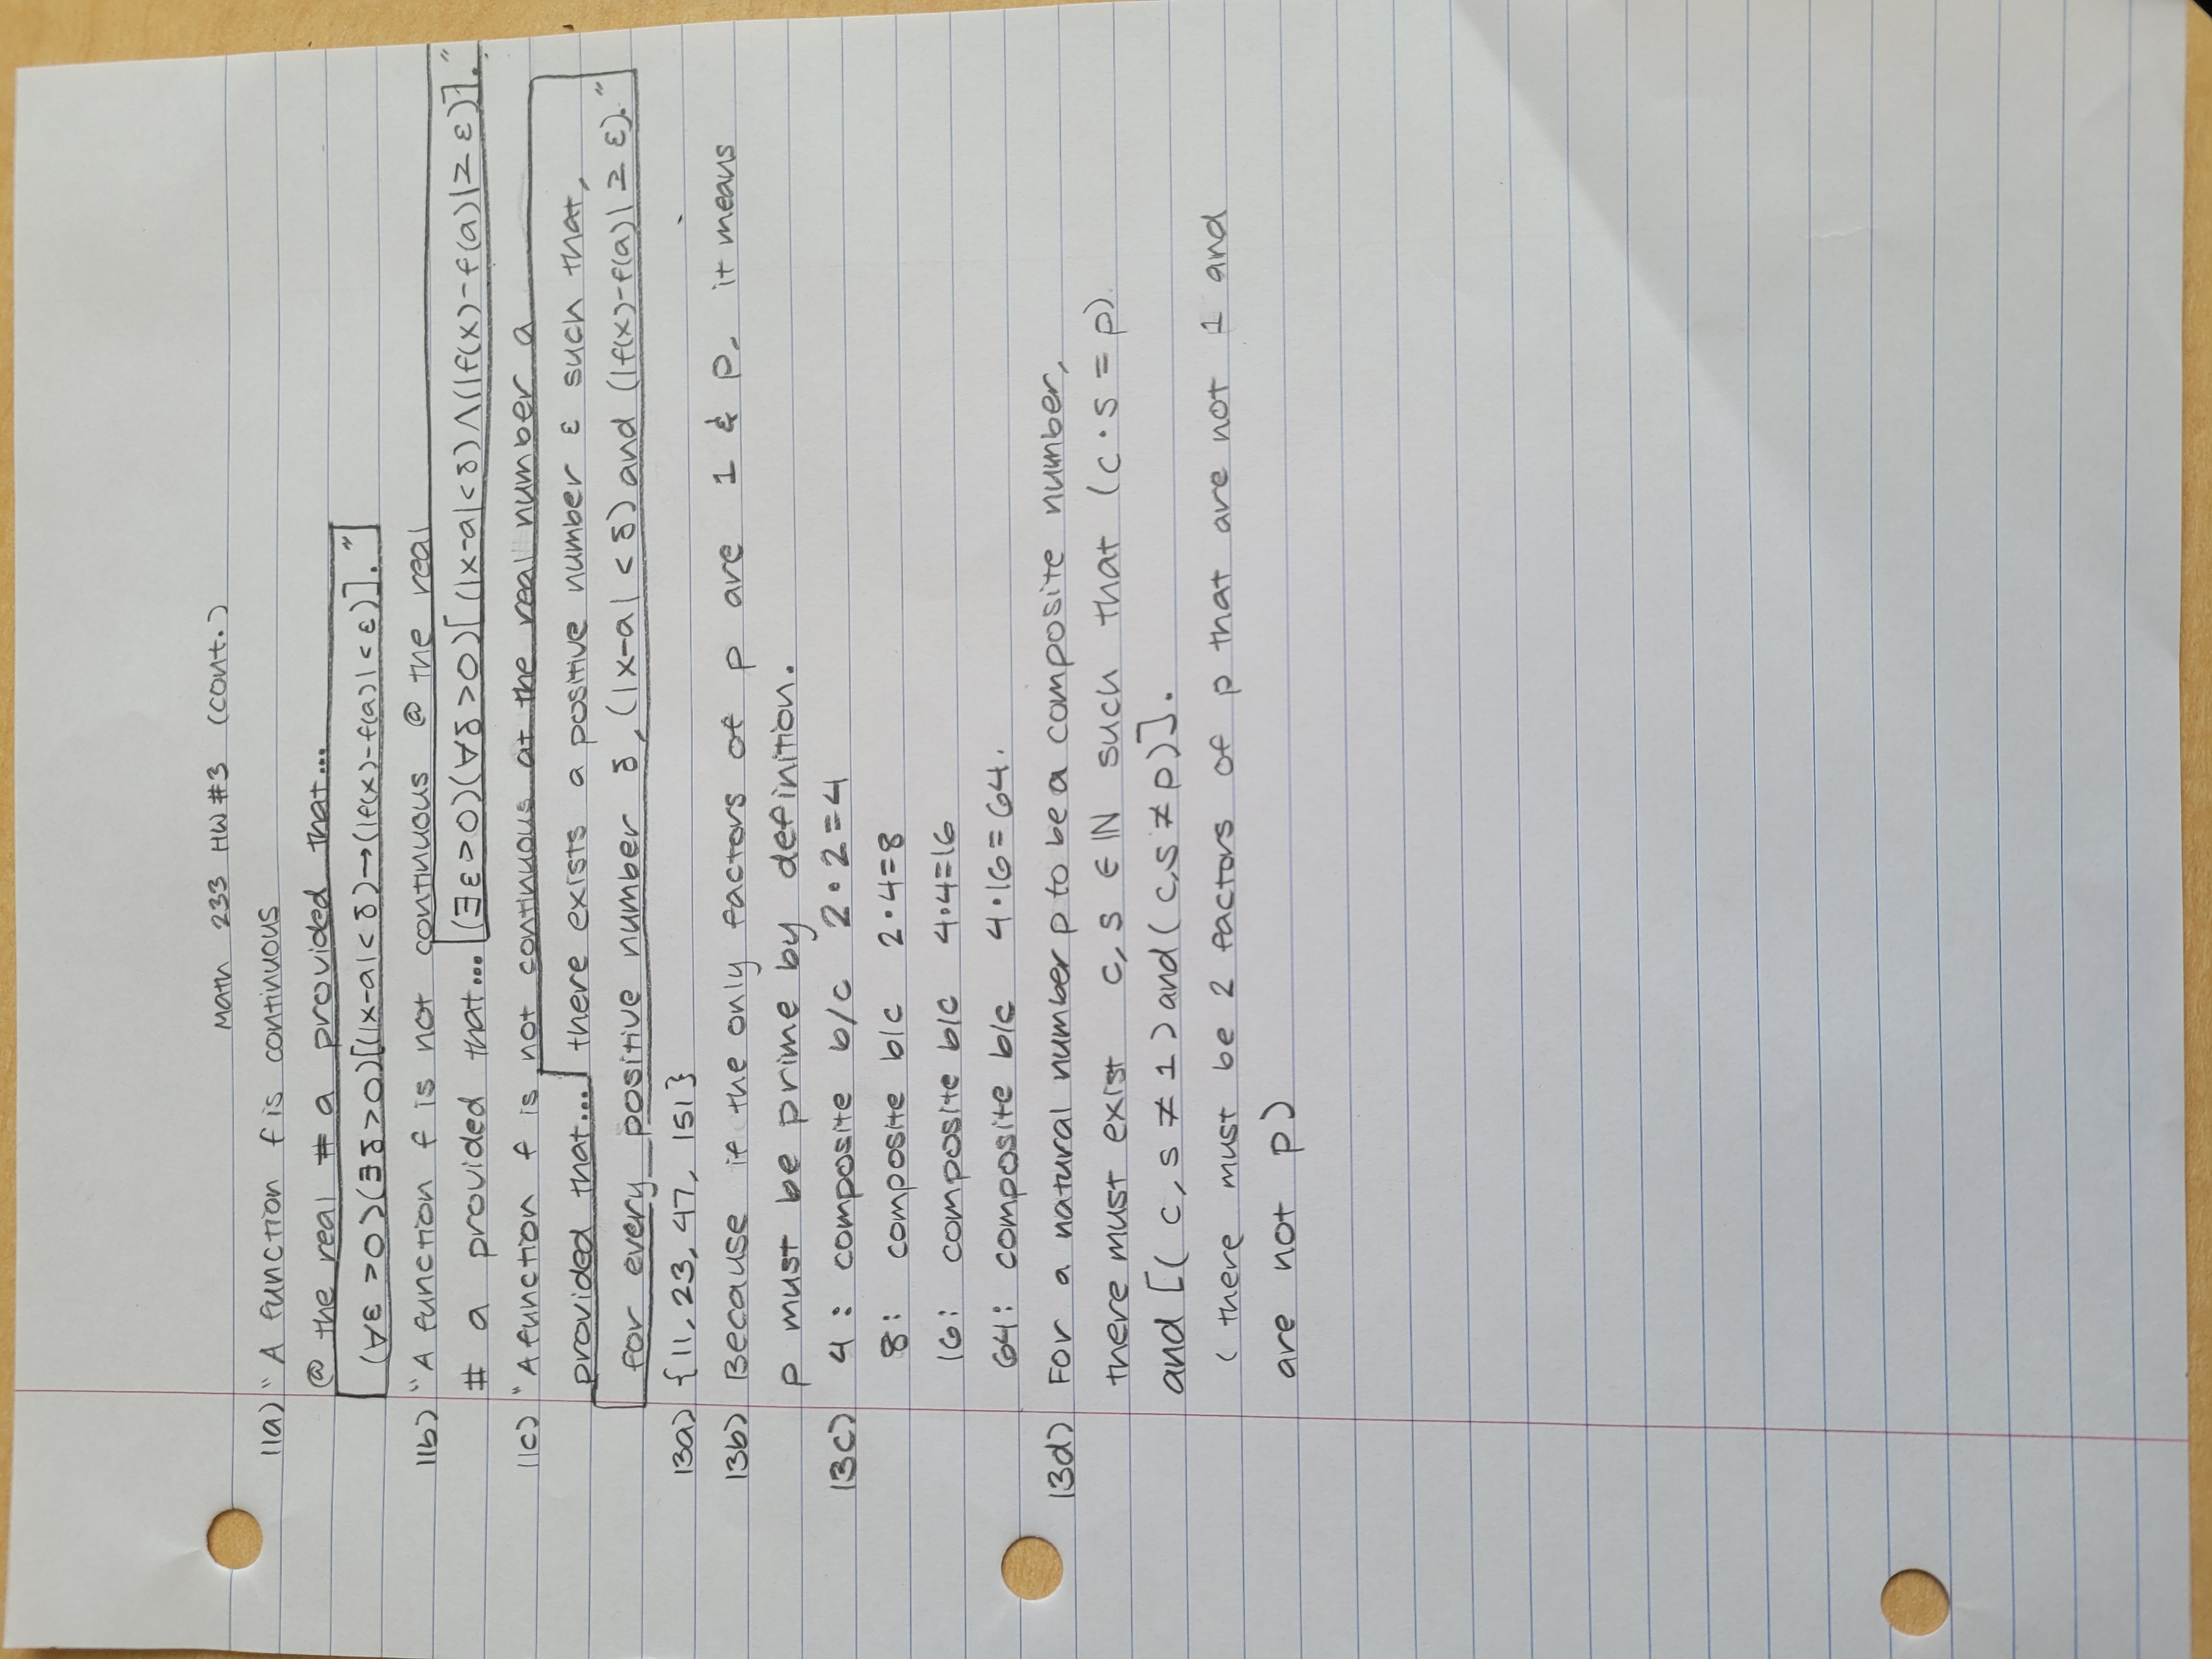 Math 233 HW#3 (cont.)
11a) "A function f is continuous
@ the real # a provided that...
(∀ε>0)(∃δ>0)[(|x-a|<δ)→(|f(x)-f(a)|<ε)]."
11b) "A function f is not continuous @ the real
# a provided that... (∃ε>0)(∀δ>0)[(|x-a|<δ)∧(|f(x)-f(a)|≥ε)]."
11c) "A function f is not continuous at the real number a
provided that... there exists a positive number ε such that,
for every positive number δ, (|x-a|<δ) and (|f(x)-f(a)|≥ε)."
13a) {11, 23, 47, 151}
13b) Because if the only factors of p are 1 & p, it means
p must be prime by definition.
13c) 4: composite b/c 2•2=4
8: composite b/c 2•4=8
16: composite b/c 4•4=16
64: composite b/c 4•16=64.
13d) For a natural number p to be a composite number,
there must exist c, s ∈ ℕ such that (c•s=p)
and [(c, s ≠ 1) and (c,s ≠ p)].
(there must be 2 factors of p that are not 1 and
are not p)